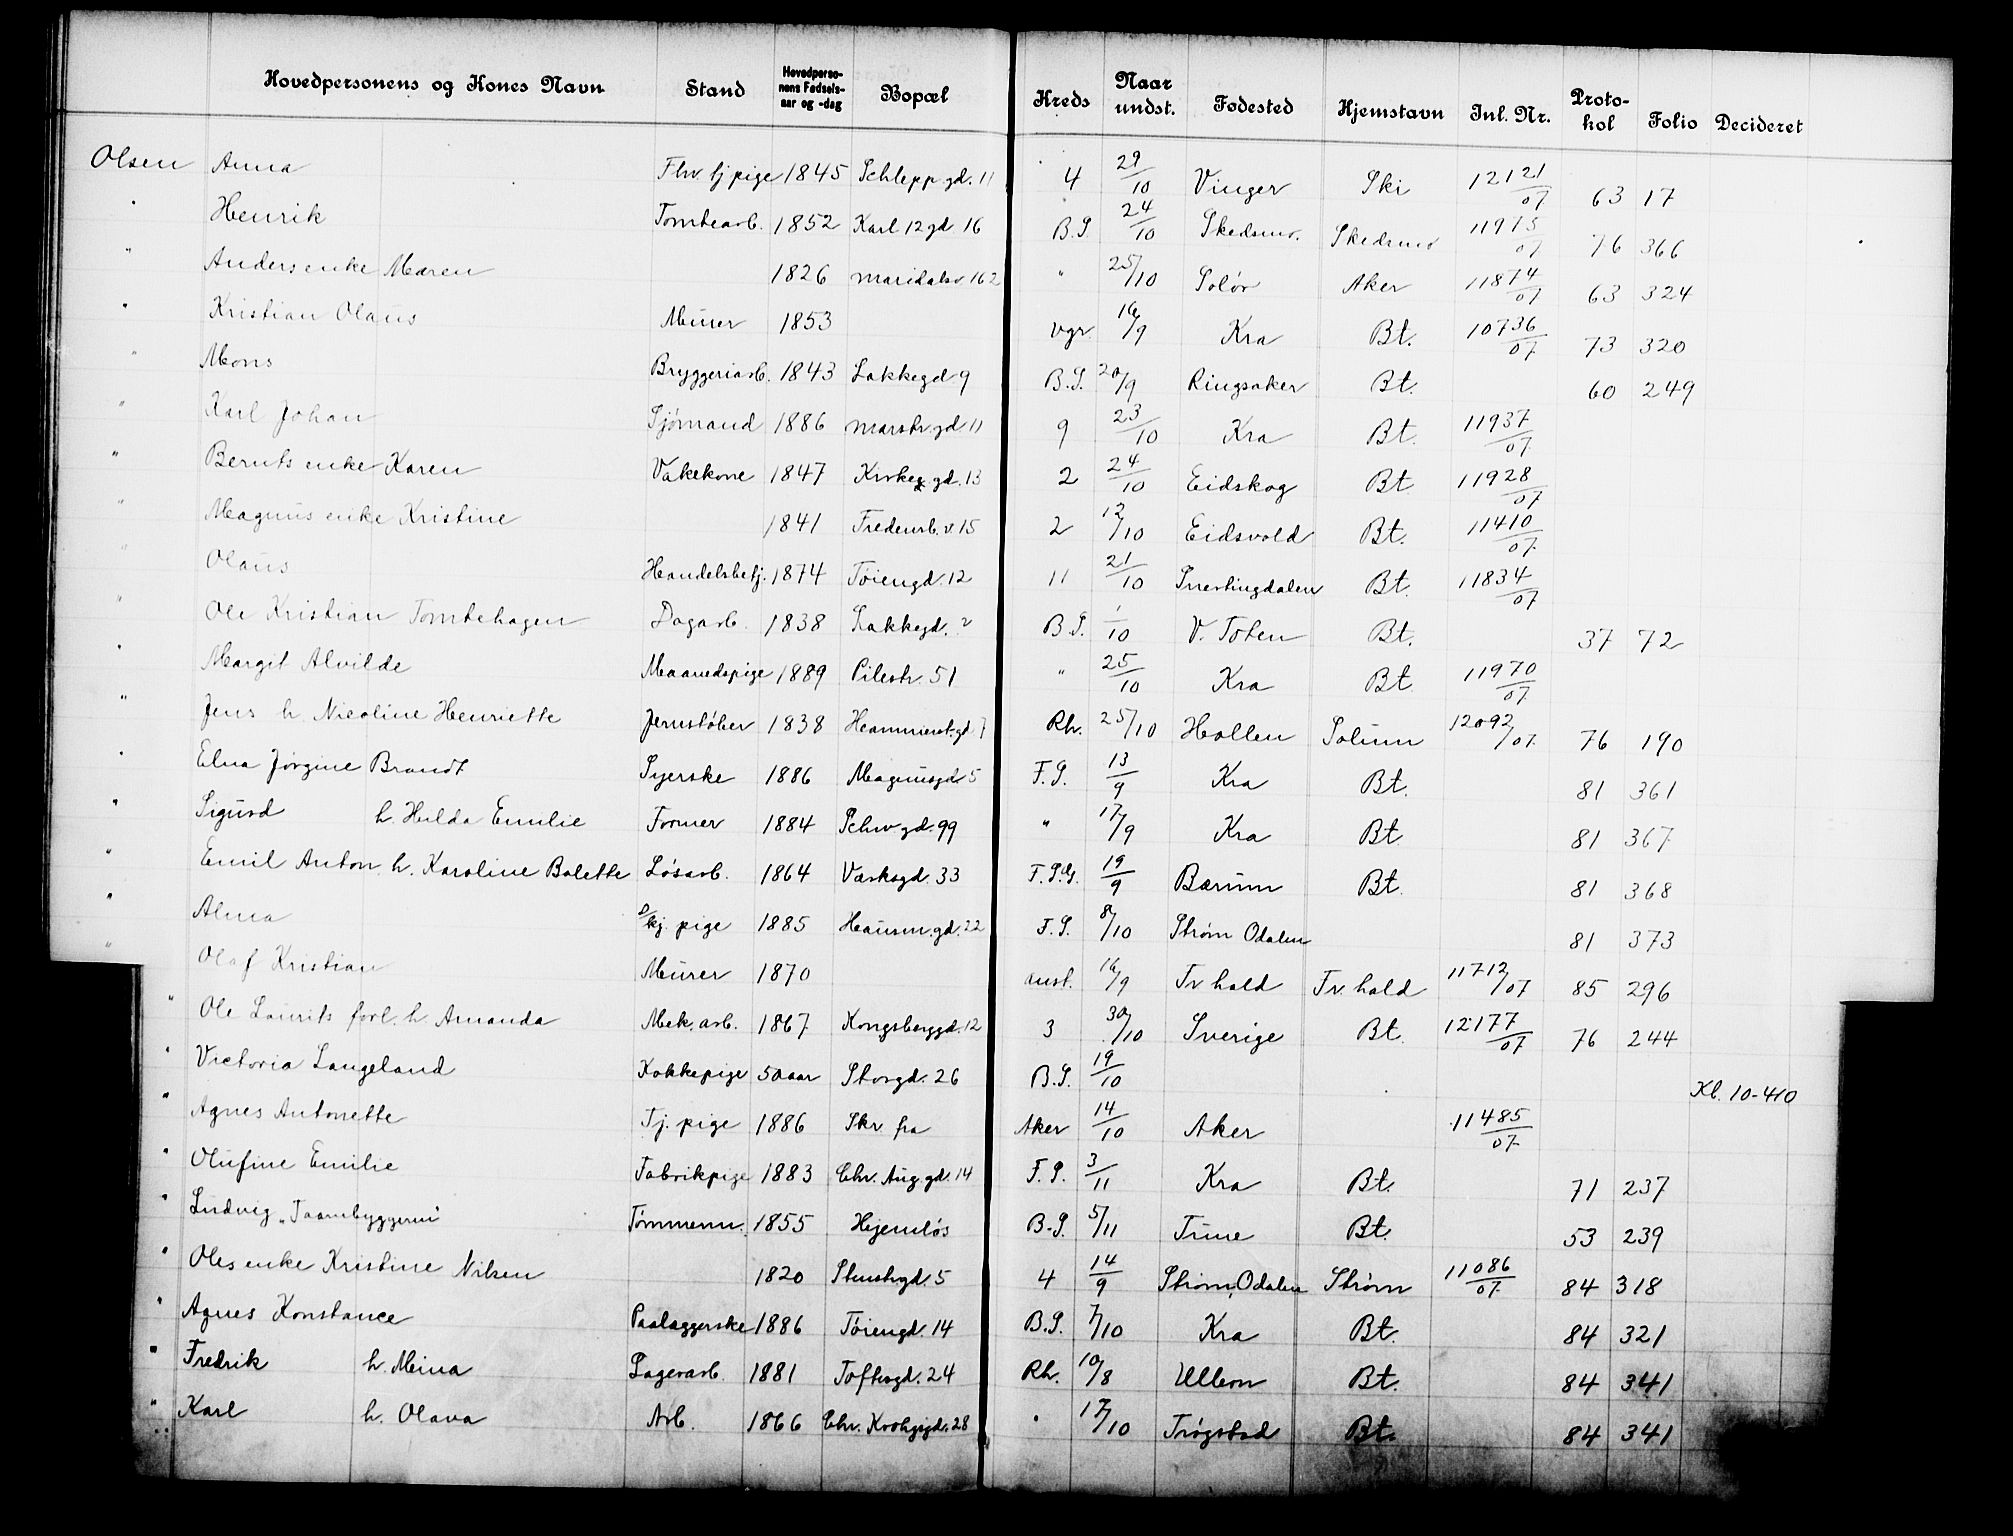 Hovedpersonens og Kones Navn Stand Hovedpersonens Fødselsaar og -dag Bopæl Kreds Naar undst. Fødested Hjemstavn Inl. Nr. Protokol Folio Decideret
Olsen Anna Fhv. tjpige 1845 Schleppgd. 11 4 29/10 Vinger Ski 12121/07 63 17
" Henrik Tomtearb. 1852 Karl 12 gd. 16 B.S. 24/10 Skedsmo. Skedsmo 11975/07 76 366
" Anders enke Maren 1826 Maridalsv. 162 " 25/10 Solør Aker 11874/07 63 324
" Kristian Olaus Murer 1853 vgr. 16/9 Kra Bt. 10736/07 73 320
" Mons Bryggeriarb. 1843 Lakkegd 9 B.S. 20/9 Ringsaker Bt. 60 249
" Karl Johan Sjømand 1886 Marstr.gd. 11 9 23/10 Kra Bt. 11937/07
" Bernts enke Karen Vakekone 1847 Kirkeg.gd. 13 2 24/10 Eidskog Bt 11928/07
" Magnus enke Kristine 1841 Fredensb.v. 15 2 12/10 Eidsvold Bt. 11410/07
" Olaus Handelsbetj. 1874 Tøiengd. 12 11 21/10 Snertingdalen Bt. 11834/07
" Ole Kristian Tomtehagen Dagarb. 1838 Lakkegd. 2 B.S. 1/10 V. Toten Bt. 37 72
" Margit Alvilde Maanedspige 1889 Pilestr. 51 " 25/10 Kra Bt. 11970/07
" Jens h. Nicoline Henriette Jernstøber 1838 Hammerst.gd 7 Rh. 25/10 Hollen Solum 12092/07 76 190
" Elna Jørgine Brandt Syerske 1886 Magnusgd 5 F.S. 13/9 Kra Bt. 81 361
" Sigurd h. Hulda Emilie Former 1884 Schwgd. 99 " 17/9 Kra Bt. 81 367
" Emil Anton h. Karoline Bolette Løsarb. 1864 Verksgd. 33 F.S.G. 19/9 Bærum Bt. 81 368
" Alma kj. pige 1885 Hausm.gd. 22 F.S. 8/10 Strøm Odalen 81 373
" Olaf Kristian Murer 1870 anst. 16/9 Tr. hald Tr. hald 11712/07 85 296
" Ole Laurits forl. h. Amanda Mek. arb. 1867 Kongsberggd. 12 3 30/10 Sverige Bt. 12177/07 76 244
" Victoria Langeland Kokkepige 50 aar Storgd. 26 B.S. 19/10 Kl. 10-410
" Agnes Antonette Tj. pige 1886 Skr fra Aker 14/10 Aker 11485/07
" Olufine Emilie Fabrikpige 1883 Chr. Aug. gd. 14 F.S. 3/11 Kra Bt. 71 237
" Ludvig „Taarnbyggeren" Tømmerm. 1855 Hjemløs B.S. 5/11 Trine Bt. 53 239
" Oles enke Kristine Nilsen 1820 Stenstrgd. 5 4 14/9 Strøm, Odalen Strøm 11086/07 84 318
" Agnes Konstance Paalæggerske 1886 Tøiengd. 14 B.S. 7/10 Kra Bt. 84 321
" Fredrik h. Mina Lagerarb. 1881 Toftesgd. 24 Rh. 10/8 Ullern Bt. 84 341
" Karl h. Olava Arb. 1866 Chr. Krohgsgd. 28 " 17/10 Trøgstad Bt. 84 341